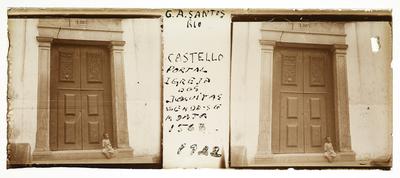 G. A. SANTOS
Rio
CASTELLO
PORTAL
IGREJA
DOS
JESUITAS
VENDE-SE
A DATA
1567
1922